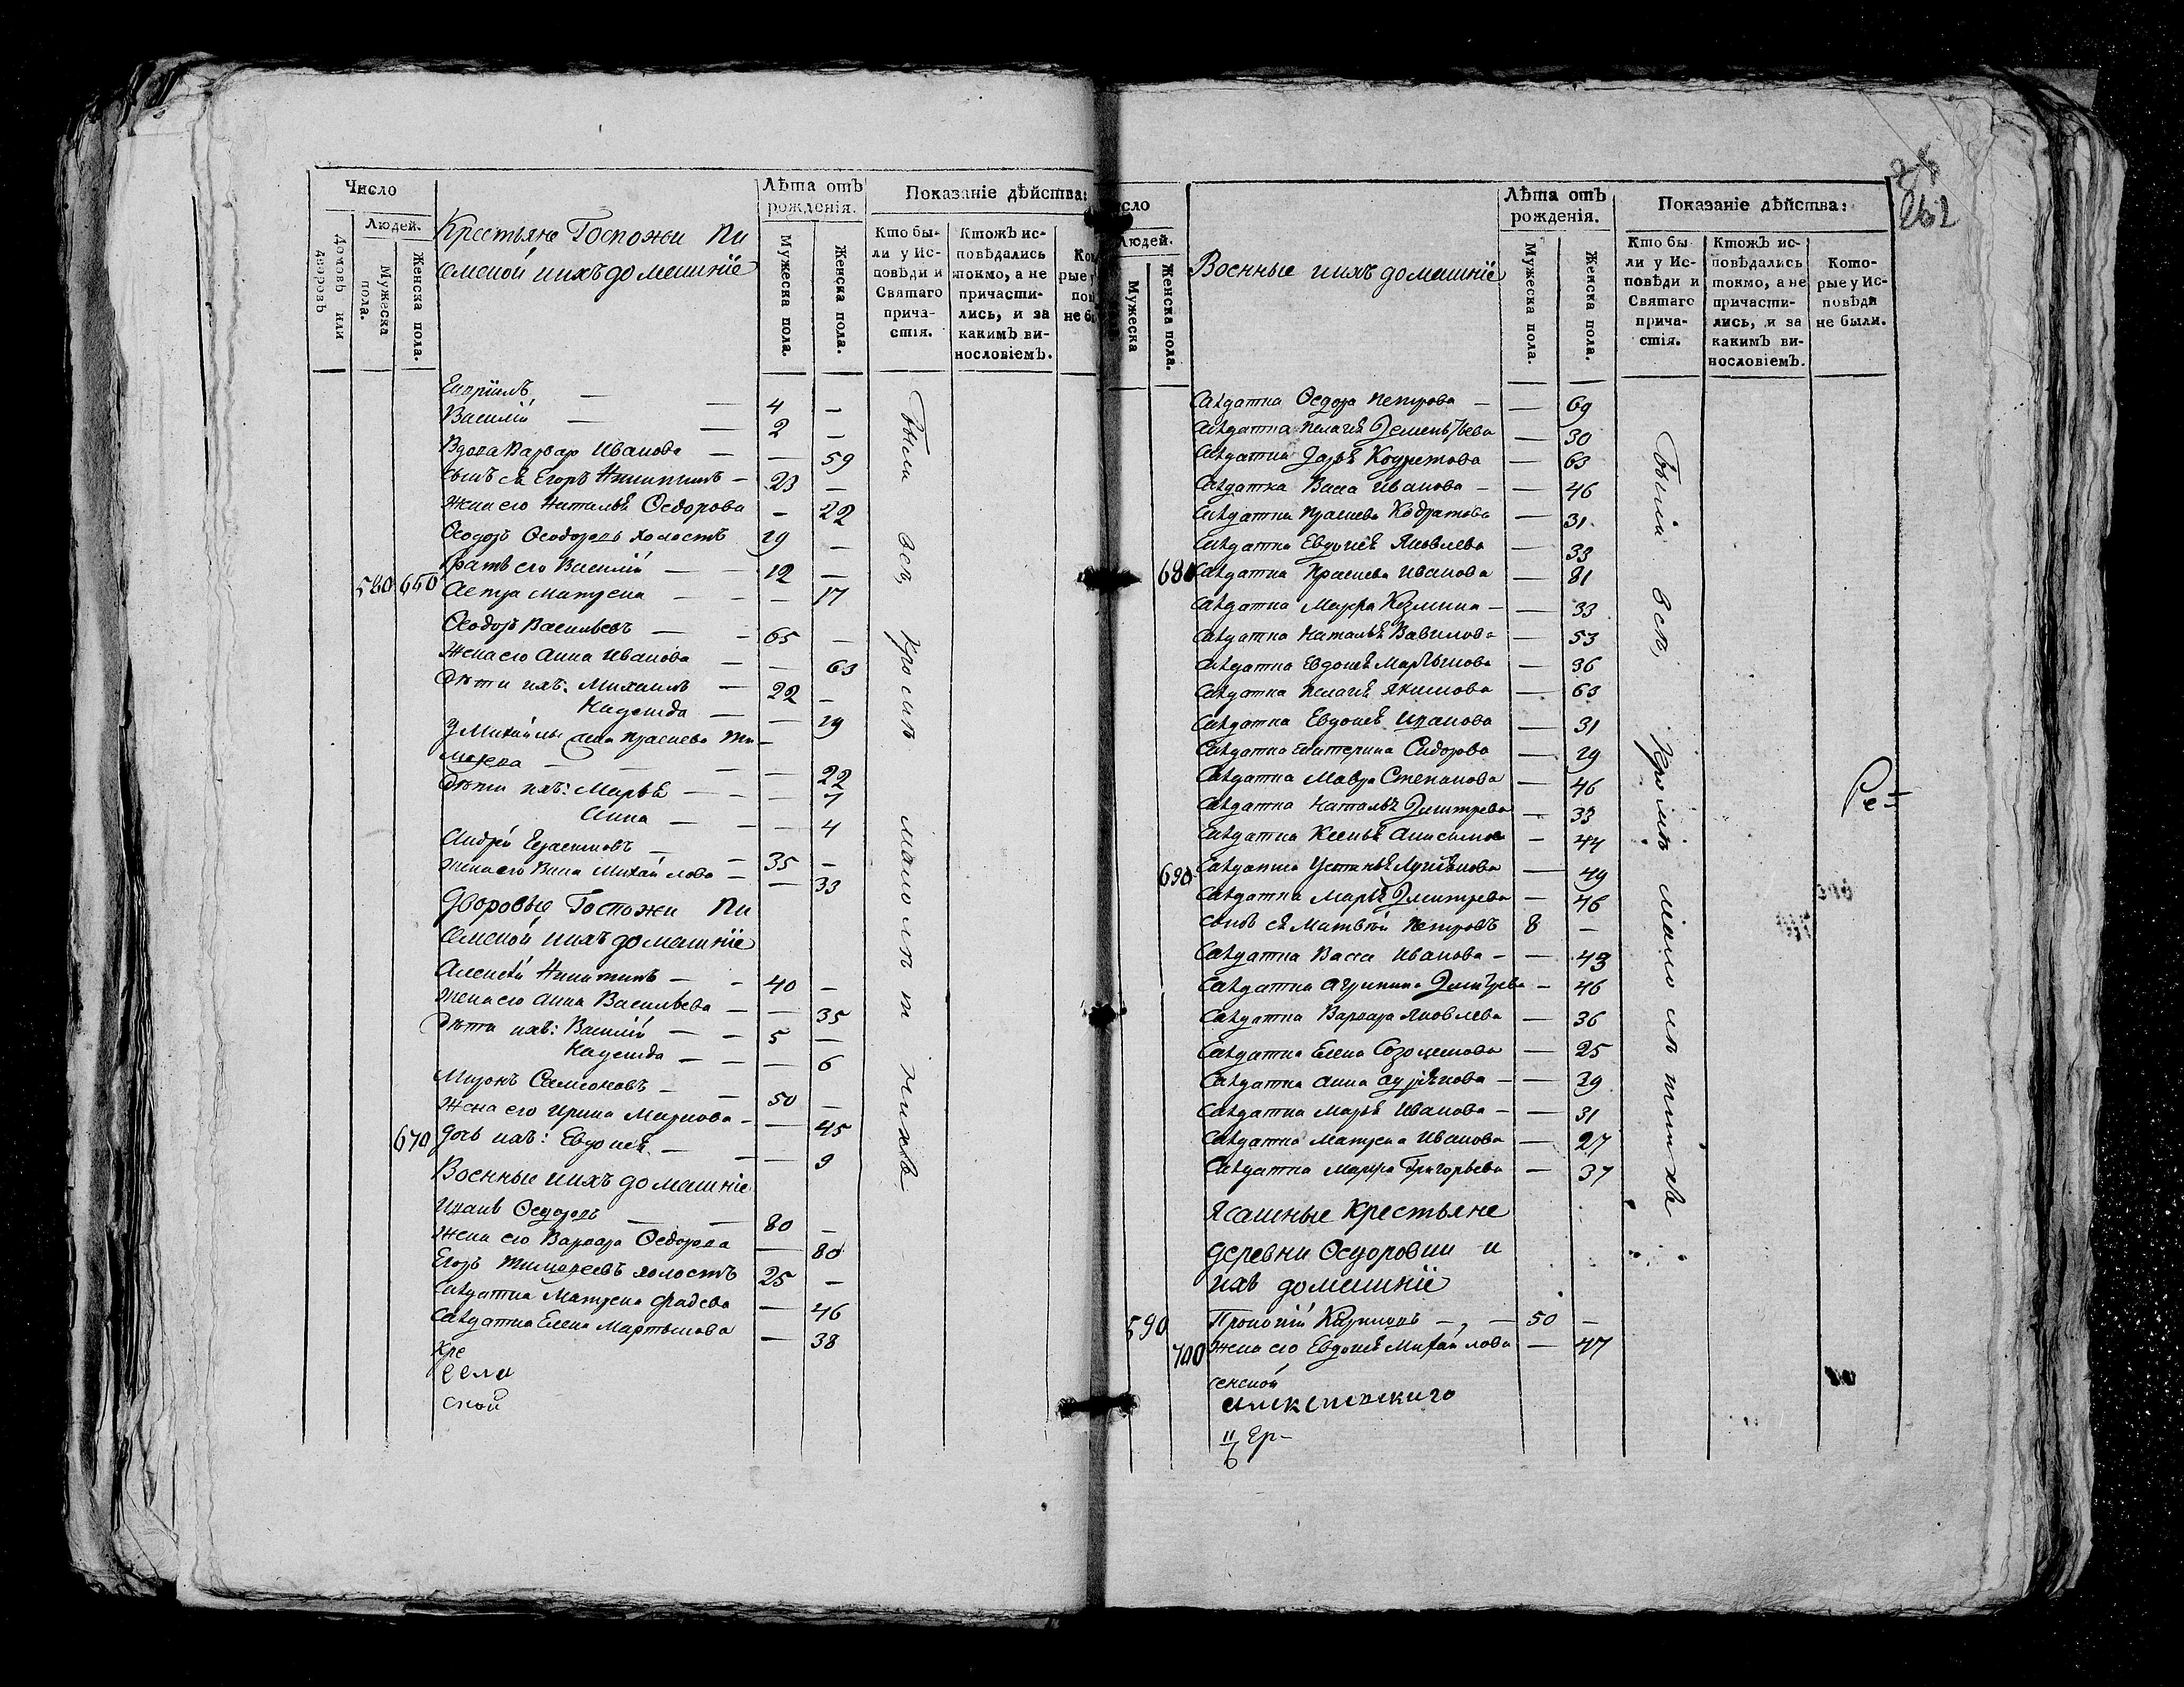 Число
Людей.
Домовъ или дворовъ
Мужеска пола.
Женска пола.
Крестьяне Госпожи Пи
семской ихъ домашніе
Лѣта отъ рожденія.
Мужеска пола.
Женска пола.
Показаніе дѣйства:
Кто бы-
ли у Ис-
повѣди и
Святаго
прича-
стія.
Ктожъ ис-
повѣдались
токмо, а не
причасти-
лись, и за
какимъ ви-
нословіемъ.
Василій — — 4 —
2 —
Вдова Варвар Иванова — — 59
сынъ ея Егоръ Никитинъ — 23 —
жена его Наталья Ѳедорова — 22
Ѳеодоръ Ѳеодоровъ холостъ 19 —
братъ его Василій — — 12 —
580 660 Сестра Матрена — — — 17
Ѳеодоръ Васильевъ — — 65 —
Жена его Анна Иванова — — 63
Дѣти ихъ: Михаилъ — 22 —
Надежда — — 19
У Михайлы жена Прасковья Ти
моѳеева — — — — 22
Дѣти ихъ: Марья — — — 7
Анна — — — 4
Андрей Герасимовъ — — 35 —
жена его Анна Михайлова — — 33
Дворовые Госпожи Пи
семской ихъ домашніе
Алексѣй Никитинъ — — 40 —
жена его Анна Васильева — — 35
Дѣти ихъ: Василій — — 5 —
Надежда — — — 6
Миронъ Самсоновъ — — 50 —
Жена его Ирина Маркова — — 45
670 дочь ихъ: Евдокія — — — 9
Военные ихъ домашніе
Иванъ Ѳедоровъ — — 80 —
жена его Варвара Ѳедорова — 80
Егоръ Тимоѳеевъ холостъ 25 —
Салдатка Матрена Фадеева — 46
Салдатка Елена Мартынова — 38
Кре
села
ской
Были всѣ, кромѣ малолѣтнихъ
сло
Людей.
Мужеска
Женска пола.
Военные ихъ домашніе
Лѣта отъ рожденія.
Мужеска пола.
Женска пола.
Показаніе дѣйства:
Кто бы
ли у Ис-
повѣди и
Святаго
прича-
стія.
Ктожъ ис-
повѣдались
токмо, а не
причасти-
лись, и за
какимъ ви-
нословіемъ.
Кото-
рые у Ис-
повѣди
не были.
262
Салдатка Ѳедора Петрова — — 69
Салдатка Пелагея Дементьева — 30
Салдатка Дарья — 63
Салдатка Васса Иванова — — 46
Салдатка Прасковья Кодратова — 31
Салдатка Евдокія Яковлева — 33
680 Салдатка Прасковья Иванова — 81
Салдатка Марфа Козмина — — 33
Салдатка Наталья Вавилова — 53
Салдатка Евдокія Мартынова — 36
Салдатка Пелагея Якимова — 63
Салдатка Евдокія Иванова — 31
Салдатка Екатерина Сидорова — 29
Салдатка Мавра Степанова — 46
Салдатка Наталья Дмитрева — 33
Салдатка Ксенья Анисимова — 44
690 Салдатка Устинья Лукьянова — 49
Салдатка Марья Дмитрева — 46
сынъ ея Матвѣй Петровъ 8 —
Салдатка Васса Иванова — — 43
Салдатка Агрипина Дмитрева — 46
Салдатка Варвара Яковлева — 36
Салдатка Елена — 25
Салдатка Анна — — 29
Салдатка Марья Иванова — — 31
Салдатка Матрена Иванова — 27
Салдатка Марфа Григорьева — 37
Ясашные Крестьяне
деревни Ѳедоровки и
ихъ домашніе
590 Прокопій — — 50 —
700 жена его Евдокія Михайлова — 47
Были всѣ, кромѣ малолѣтнихъ